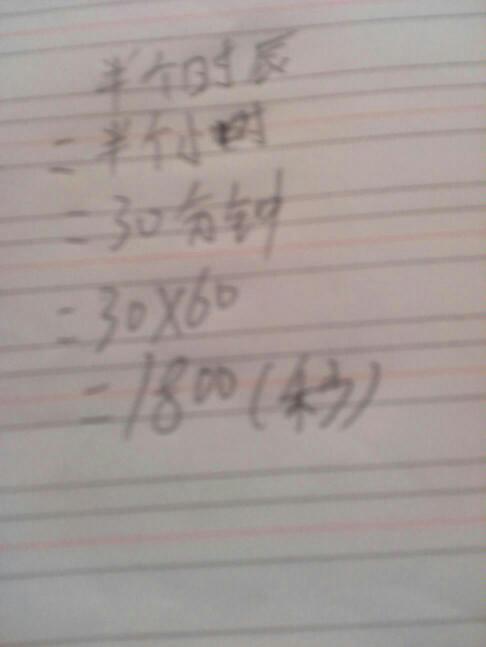 半个时辰
=半个小时
=30分钟
=30×60
=1800(秒)